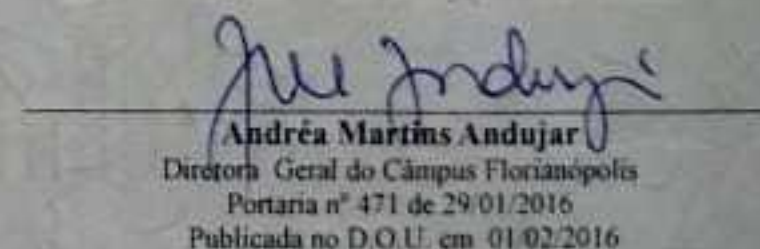 Andréa Martins Andujar
Diretora Geral do Câmpus Florianópolis
Portaria nº 471 de 29/01/2016
Publicada no D.O.U. em 01/02/2016